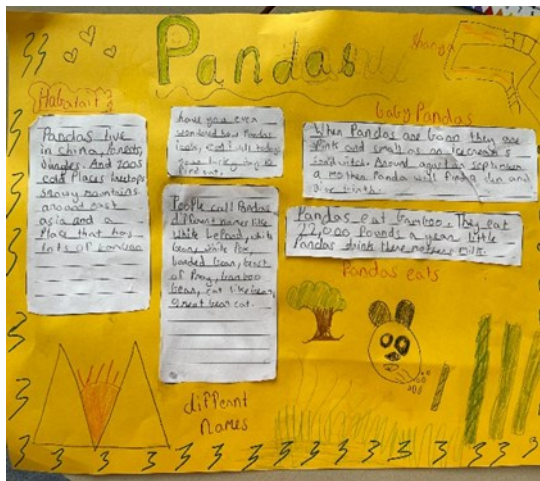 Pandas
Habatait?
Pandas live
in china, forests,
Jungles. And zoos
cold Places treetops
snowy mountains
around east
asia and a
Place that has
lots of bamboo
have you ever
wondered how Pandas
look, well today
your lucky day to
find out.
People call Pandas
different names like
White Lepard, white
bear, white fox,
banded bear, beast
of Pray, bamboo
bear, cat like bear,
Great bear cat.
different
names
baby Pandas
When Pandas are born they are
Pink and small as an icecream
sandwitch. Around
a mother Panda will find a den and
give birth.
Pandas eat bamboo. They eat
22,000 Pounds a year little
Pandas drink there mothers milk.
Pandas eats